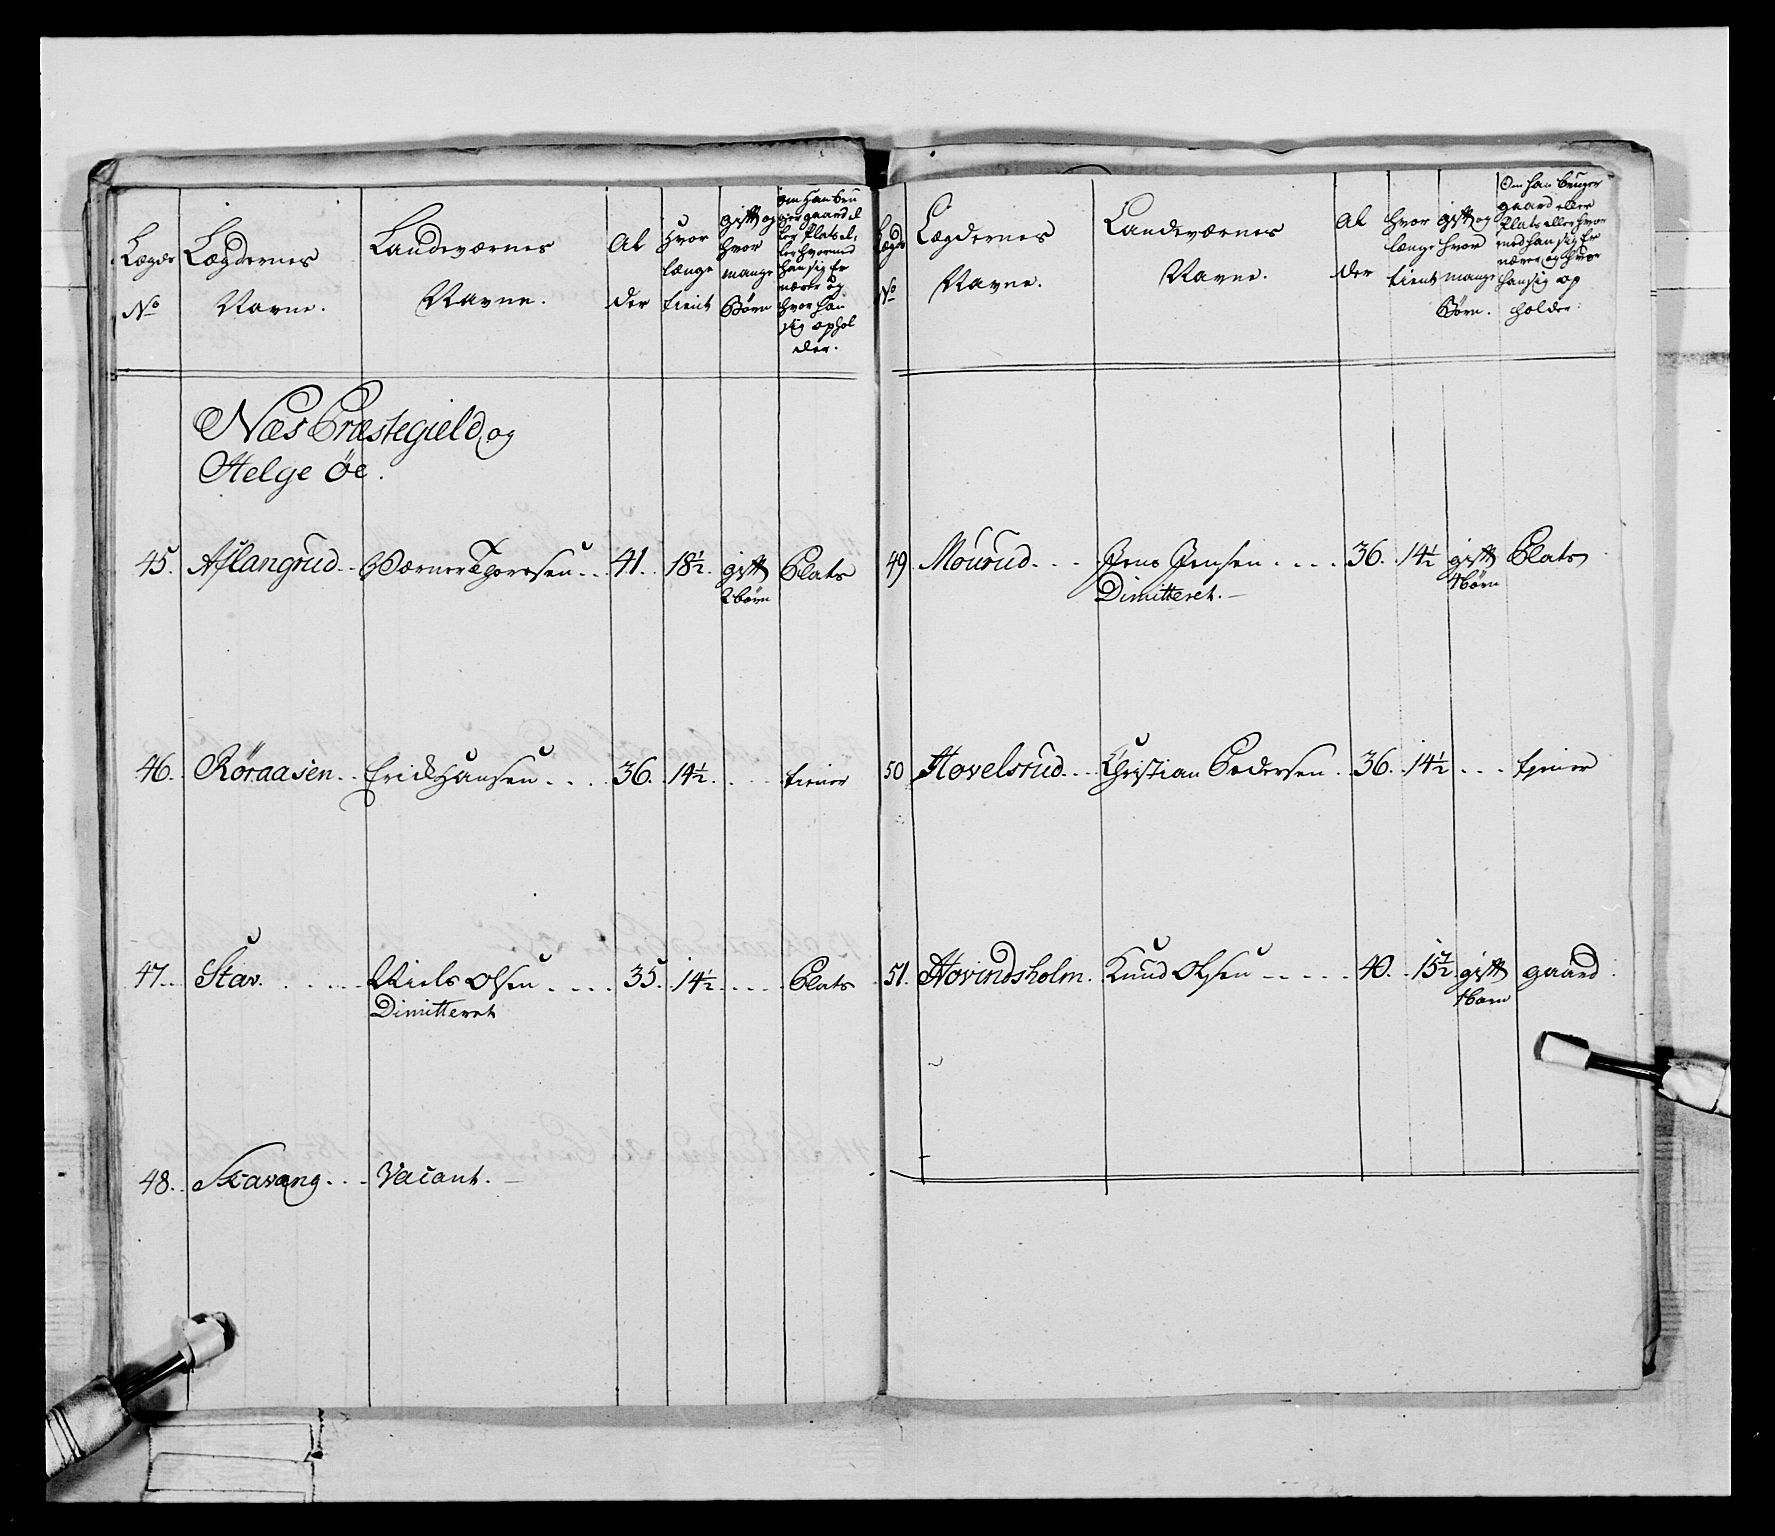 Lægde No
Lægdernes Navne.
Landeværnes Navne.
Alder
Hvor længe tient
gift og hvor mange Børn
om han bruger gaard eller Plats eller hvormed han sig Ernærer og hvor han sig opholder.
Næs Præstegield, og
Helge Øe.
45. Aflangrud.. Værner Thoresen.. 41. 18½. gift Plats
2 børn
46. Røraasen.. Erick Hansen.... 36. 14½. ... tiener
47... Stav...... Niels Olsen.... 35. 14½.... Plats
Dimitteret
48.. Skavang... Vacant.
Lægde No
Lægdernes Navne.
Landeværnes Navne.
Alder
hvor længe tient
gift og hvor mange Børn.
Om han bruger gaard eller Plats eller hvormed han sig Ernærer og hvor han sig opholder:
49 Mourud... Jens Jensen.... 36. 14½ gift Plats
4 børn
Dimitteret.
50 Hovelsrud... Christian Pedersen. 36. 14½ ... tjener
51. Hovindsholm. Knud Olsen..... 40. 15½ gift gaard.
1 barn